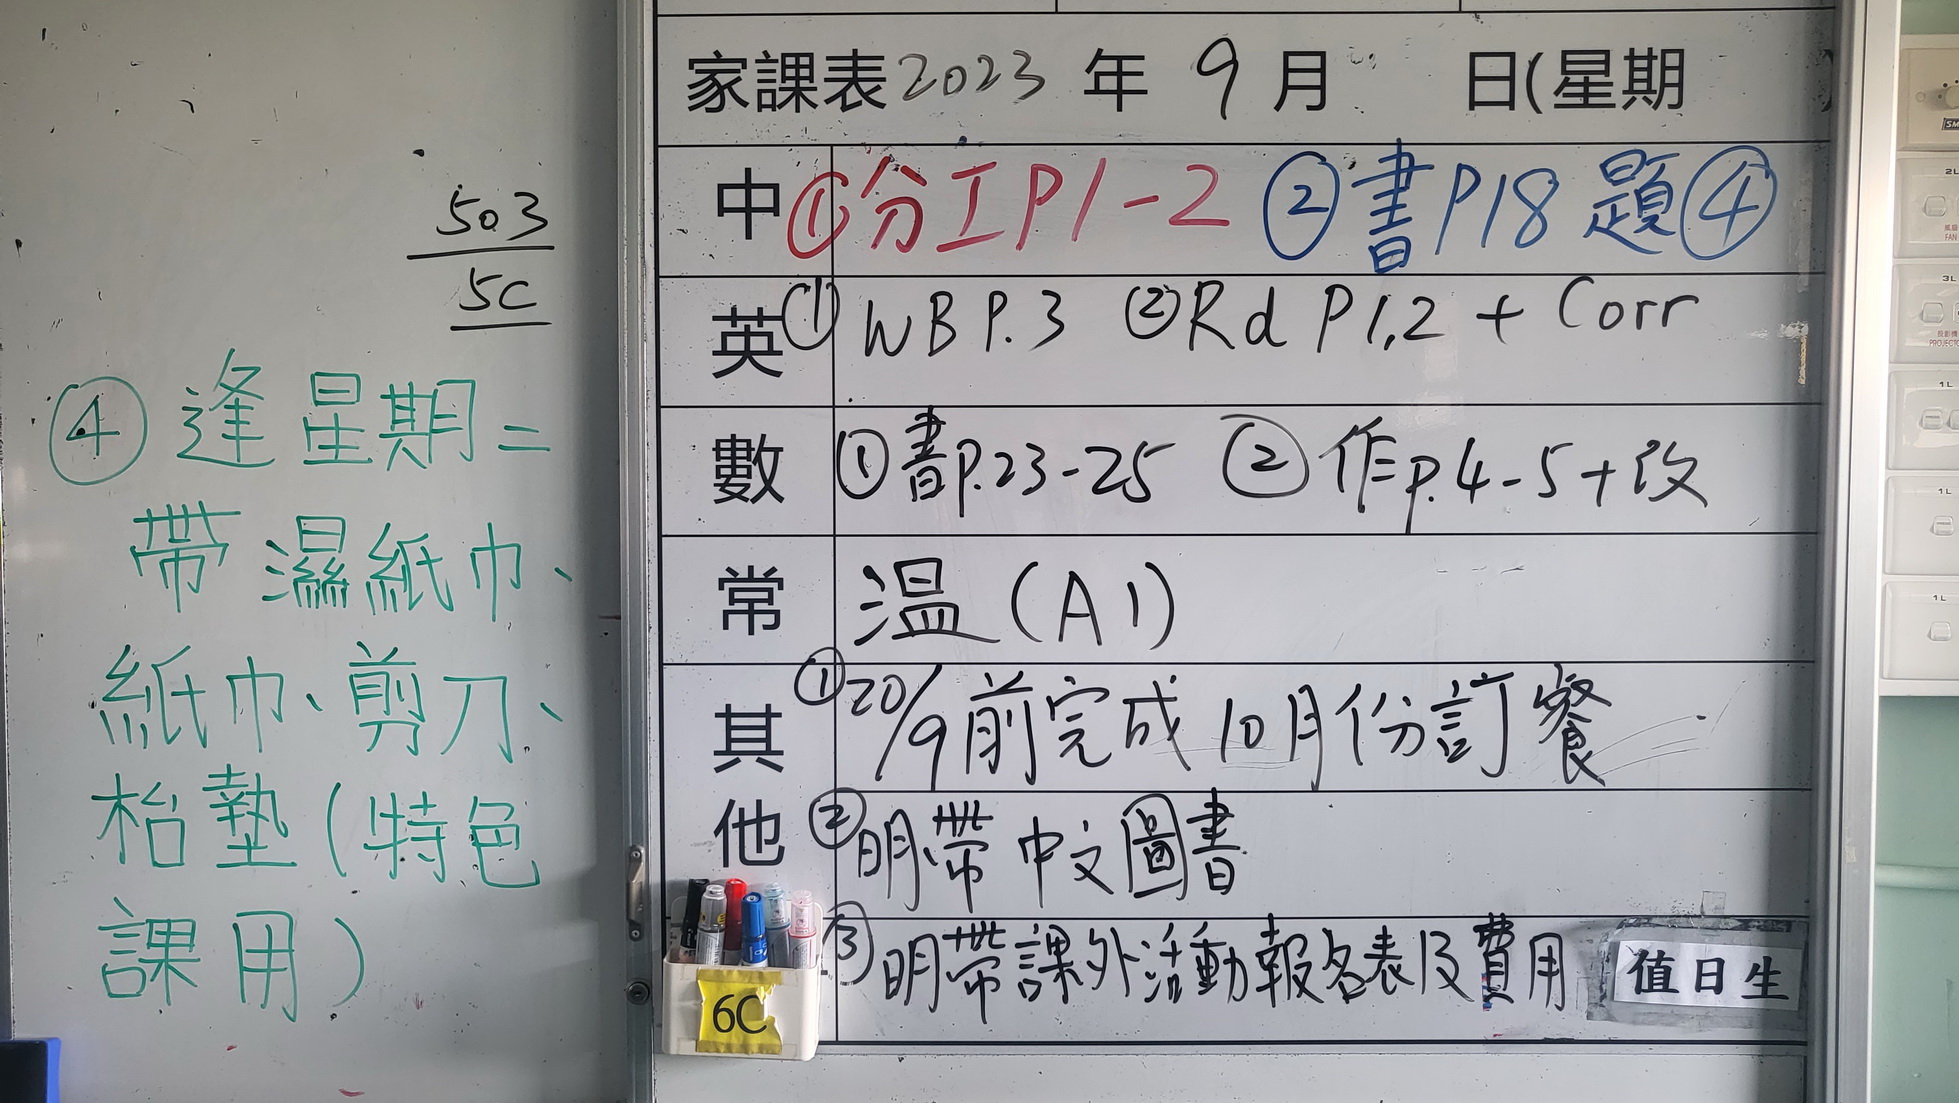 503
5C
④逢星期二
帶濕紙巾、
紙巾、剪刀、
枱墊(特色
課用)
家課表2023年9月 日(星期
中①分工P1-2 ②書P18題④
英①WB P.3 ②Rd P1,2 + Corr
數①書P.23-25 ②作p.4-5+改
常 温(A1)
其他①20/9前完成10月份訂餐
②明帶中文圖書
③明帶課外活動報名表及費用
值日生
6C